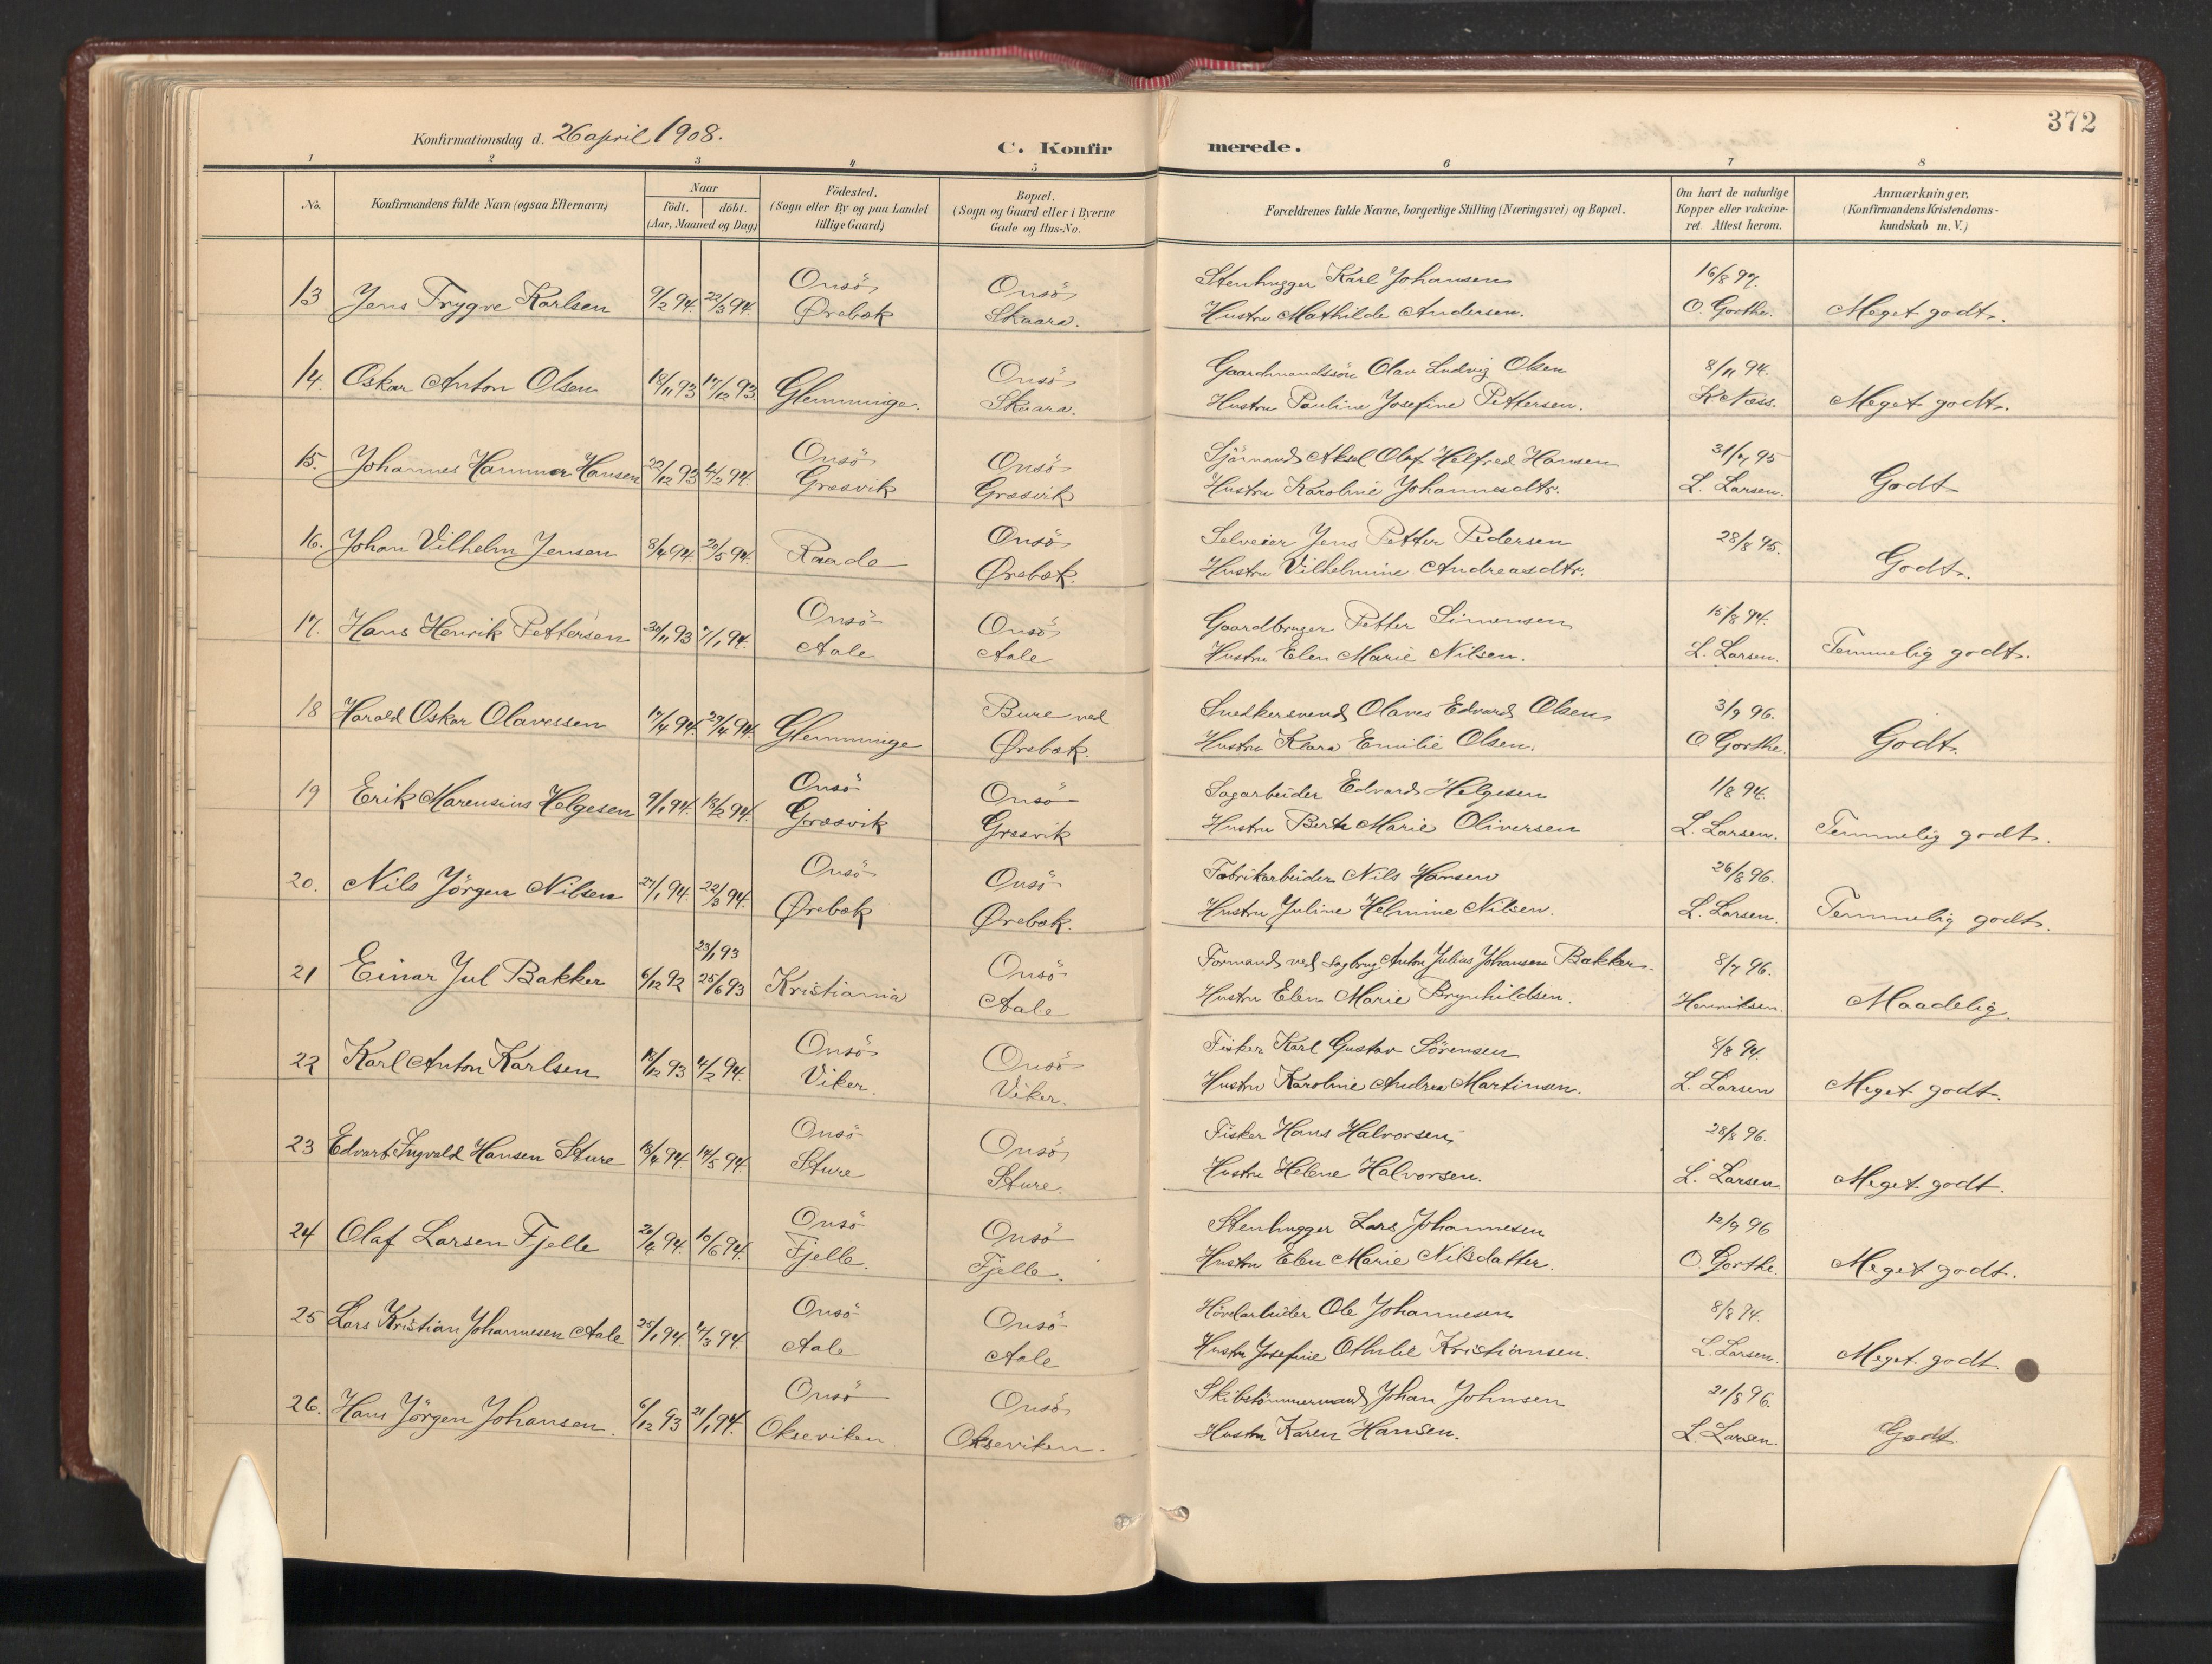 372
Konfirmationsdag d. 26 april 1908.
C. Konfirmerede.
1 2 3 4 5 6 7 8
No.
Konfirmandens fulde Navn (ogsaa Efternavn)
Naar
født. døbt.
(Aar, Maaned og Dag)
Födested.
(Sogn eller By og paa Landet
tillige Gaard)
Bopæl.
(Sogn og Gaard eller i Byerne
Gade og Hus-No.
Forældrenes fulde Navne, borgerlige Stilling (Næringsvei) og Bopæl.
Om havt de naturlige
Kopper eller vakcine-
ret. Attest herom.
Anmærkninger.
(Konfirmandens Kristendoms-
kundskab m. V.)
Onsö Onsö Stenhugger Karl Johansen 16/8 97.
13 Jens Trygve Karlsen 9/2 94. 22/3 94. Ørebæk Skaara. Hustru Mathilde Andersen. O. Gorthe. Meget godt.
Onsö Gaardmandssön Olav Ludvig Olsen 8/11 94.
14. Oskar Anton Olsen 18/11 93 17/12 93. Glemminge. Skaara. Hustru Pauline Josefine Pettersen. K. Næss. Meget godt.
Onsö Onsö Sjömand Aksel Olaf Helfred Hansen 31/7 95
15. Johannes Hammer Hansen 22/12 93 4/2 94. Græsvik Græsvik Hustru Karoline Johannesdtr. L. Larsen. Godt
Onsö Selveier Jens Petter Pedersen 28/8 95.
16. Johan Vilhelm Jensen 8/4 94. 20/5 94. Raade Ørebæk. Hustru Vilhelmine Andreasdtr. Godt.
Onsö Onsö Gaardbruger Petter Simensen 15/8 94.
17. Hans Henrik Pettersen 30/11 93 7/1 94. Aale Aale Hustru Elen Marie Nilsen. L. Larsen. Temmelig godt.
Bure ved Snedkersvend Olaves Edvard Olsen 3/9 96.
18 Harald Oskar Olavessen 17/4 94. 29/4 94. Glemminge Ørebæk. Hustru Klara Emilie Olsen. O. Gorthe. Godt.
Onsö Onsö Sagarbeider Edvard Helgesen 1/8 94.
19 Erik Marensius Helgesen 9/1 94. 18/2 94. Græsvik Græsvik Hustru Berte Marie Oliversen L. Larsen. Temmelig godt.
Onsö Onsö Fabrikarbeider Nils Hansen 26/8 96.
20. Nils Jörgen Nilsen 27/1 94. 22/3 94. Ørebæk Ørebæk. Hustru Juline Helmine Nilsen. L. Larsen. Temmelig godt.
23/1 93 Onsö Formand ved Sagbrug Anton Julius Johansen Bakker. 8/7 96.
21 Einar Jul Bakker 6/12 92 25/6 93 Kristiania Aale Hustru Elen Marie Brynhildsen. Henriksen. Maadelig.
Onsö Onsö Fisker Karl Gustav Sörensen 8/8 94.
22 Karl Anton Karlsen 18/12 93 4/2 94. Viker. Viker. Hustru Karoline Andrea Martinsen. L. Larsen Meget godt.
Onsö Onsö Fisker Hans Halvorsen 28/8 96.
23 Edvart Ingvald Hansen Sture 18/4 94. 14/5 94. Sture Sture. Hustru Helene Halvorsen. L. Larsen Meget godt.
Onsö Onsö Stenhugger Lars Johannesen 12/9 96
24 Olaf Larsen Fjelle 20/4 94. 10/6 94. Fjelle. Fjelle. Hustru Elen Marie Nilsdatter. O. Gorthe. Meget godt.
Onsö Onsö Hövlarbeider Ole Johannesen 8/8 94.
25 Lars Kristian Johannesen Aale 25/1 94. 4/3 94. Aale Aale Hustru Josefine Othilie Kristiansen. L. Larsen. Meget godt.
Onsö Onsö Skibstömmermand Johan Johnsen 21/8 96.
26. Hans Jörgen Johansen. 6/12 93 21/1 94. Okseviken. Okseviken. Hustru Karen Hansen. L. Larsen. Godt.